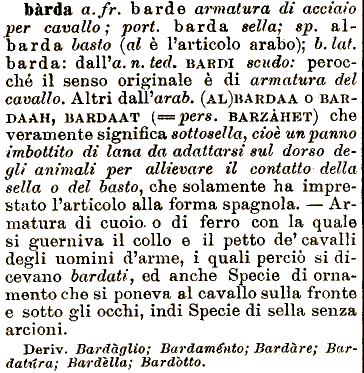 bàrda a. fr. barde armatura di acciaio
per cavallo; port. barda sella; sp. al-
barda basto (al è l'articolo arabo); b. lat.
barda: dall'a. n. ted. BARDI scudo: peroc-
ché il senso originale è di armatura del
cavallo. Altri dall'arab. (AL)BARDAA O BAR-
DAAH, BARDAAT (= pers. BARZÀHET) che
veramente significa sottosella, cioè un panno
imbottito di lana da adattarsi sul dorso de-
gli animali per allievare il contatto della
sella o del basto, che solamente ha impre-
stato l'articolo alla forma spagnola. — Ar-
matura di cuoio o di ferro con la quale
si guerniva il collo e il petto de' cavalli
degli uomini d'arme, i quali perciò si di-
cevano bardati, ed anche Specie di orna-
mento che si poneva al cavallo sulla fronte
e sotto gli occhi, indi Specie di sella senza
arcioni.
Deriv. Bardàglio; Bardaménto; Bardàre; Bar-
datúra; Bardèlla; Bardòtto.